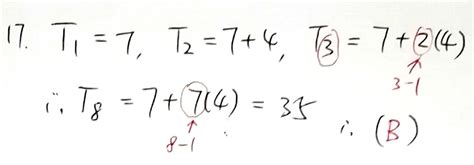 17. T₁ = 7, T₂ = 7+4, T₃ = 7+2(4)
3-1
∴ T₈ = 7+7(4) = 35 ∴ (B)
8-1